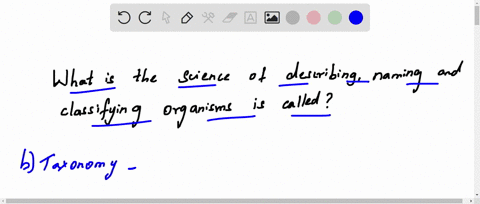 What is the science of describing, naming and
classifying organisms is called?
b) Taxonomy -